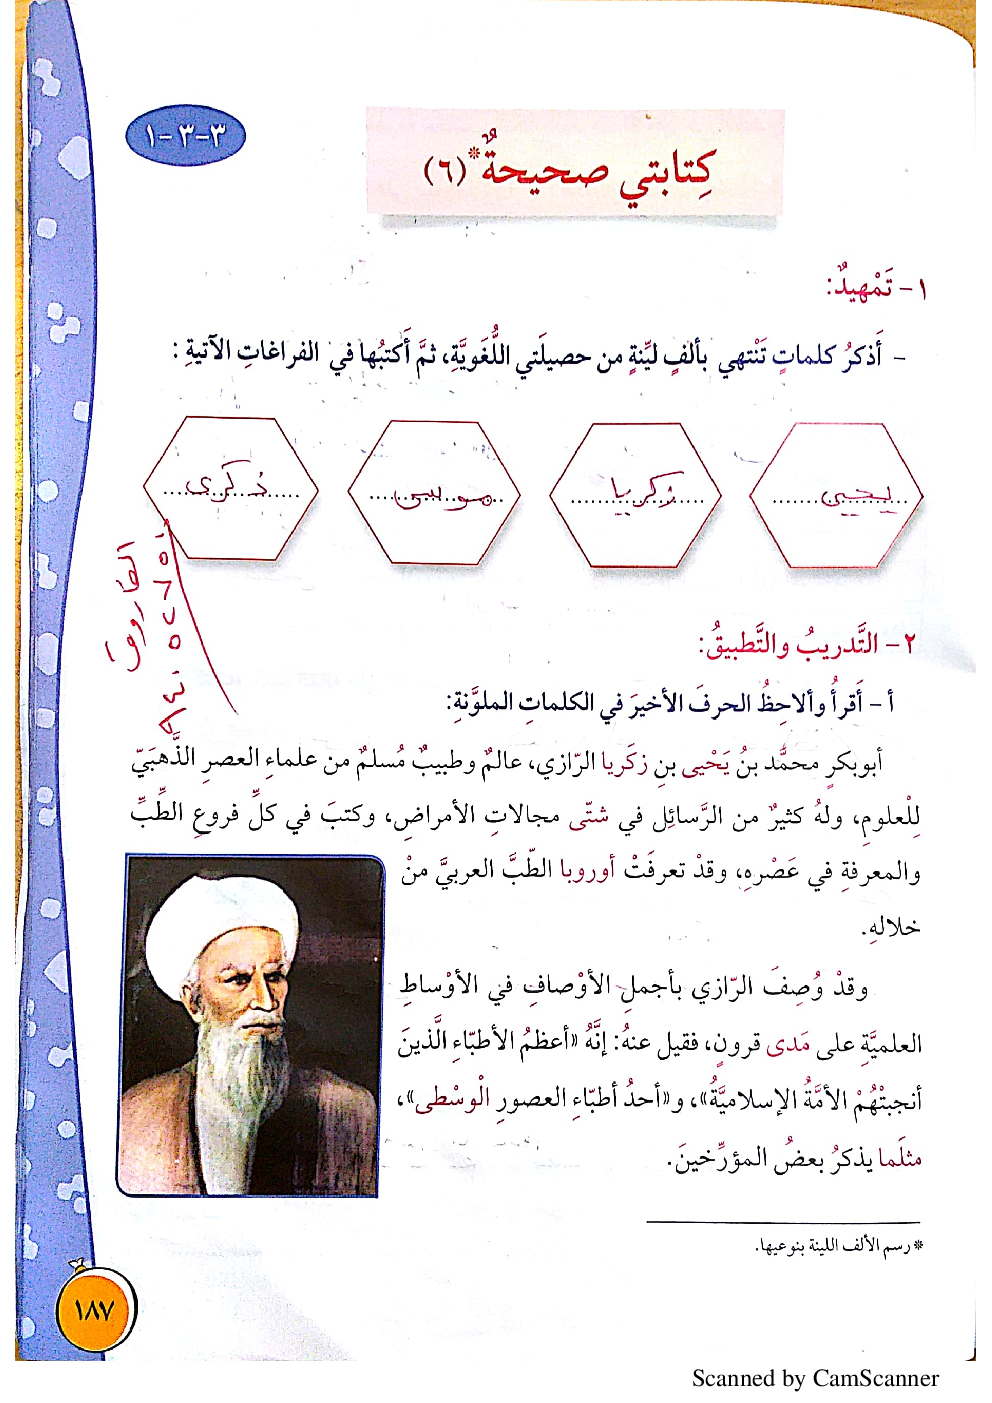 ٣-٣-١
كِتابتي صحيحةٌ* (٦)
١- تَمْهيدٌ:
- أَذكرُ كلماتٍ تَنْتهي بألفٍ ليِّنةٍ من حصيلَتي اللُّغَويَّةِ، ثمَّ أَكتبُها في الفراغاتِ الآتيةِ:
يحيى زكريا موسى ذكرى
الفاروق
٢- التَّدريبُ والتَّطبيقُ:
أ- أَقرأُ وألاحِظُ الحرفَ الأخيرَ في الكلماتِ الملوَّنةِ:
أبوبكرٍ محمَّد بنُ يَحْيى بنِ زكَريا الرّازي، عالمٌ وطبيبٌ مُسلمٌ من علماءِ العصرِ الذَّهبَيّ
لِلْعلومِ، ولهُ كثيرٌ من الرَّسائِل في شتّى مجالاتِ الأمراضِ، وكتبَ في كلِّ فروعِ الطِّبِّ
والمعرفةِ في عَصْرهِ، وقدْ تعرفَتْ أوروبا الطّبَّ العربيَّ منْ
خلالهِ.
وقدْ وُصِفَ الرّازي بأجملِ الأوْصافِ في الأوْساطِ
العلميَّةِ على مَدى قرونٍ، فقيل عنهُ: إنَّهُ «أعظمُ الأطبّاءِ الَّذينَ
أنجبتْهُمْ الأمَّةُ الإسلاميَّةُ»، و«أحدُ أطبّاءِ العصورِ الْوسْطى»،
مثلَما يذكرُ بعضُ المؤرِّخينَ.
* رسم الألف اللينة بنوعيها.
١٨٧
Scanned by CamScanner